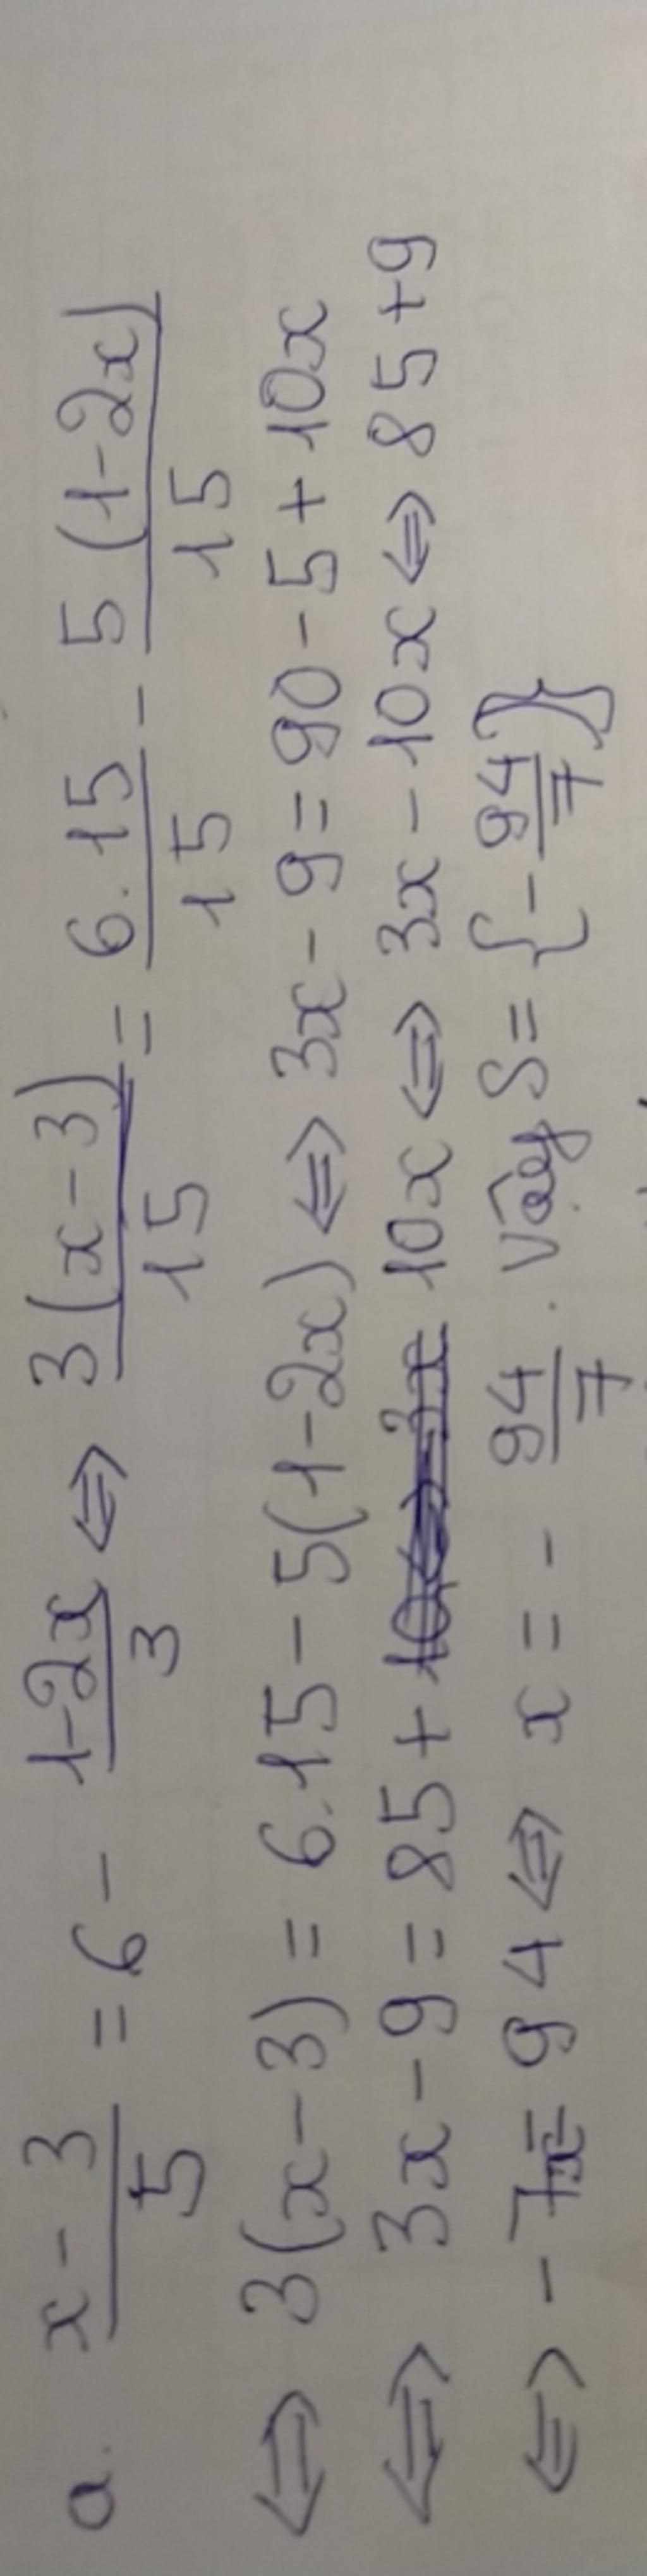 a. x-3/5 = 6 - 1-2x/3 ⇔ 3(x-3)/15 = 6.15/15 - 5(1-2x)/15
⇔ 3(x-3) = 6.15 - 5(1-2x) ⇔ 3x - 9 = 90 - 5 + 10x
⇔ 3x - 9 = 85 + 10x ⇔ 3x - 10x ⇔ 85 + 9
⇔ -7x = 94 ⇔ x = - 94/7 . Vậy S = {- 94/7}